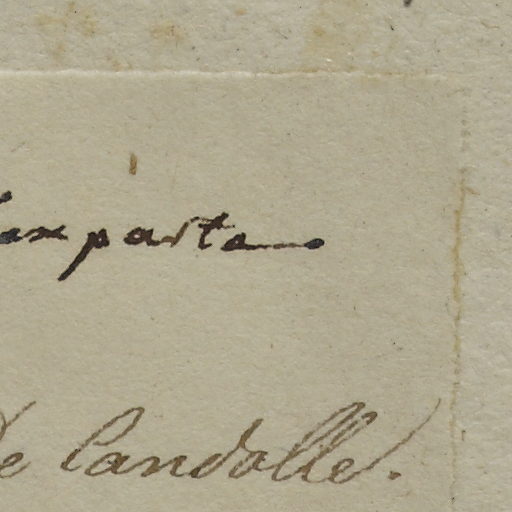 ex parte
De Candolle.